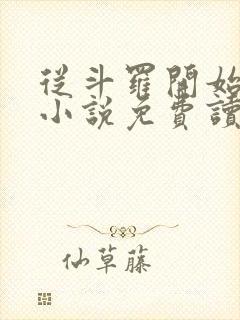 從斗羅開始
小說免費讀
仙草藤